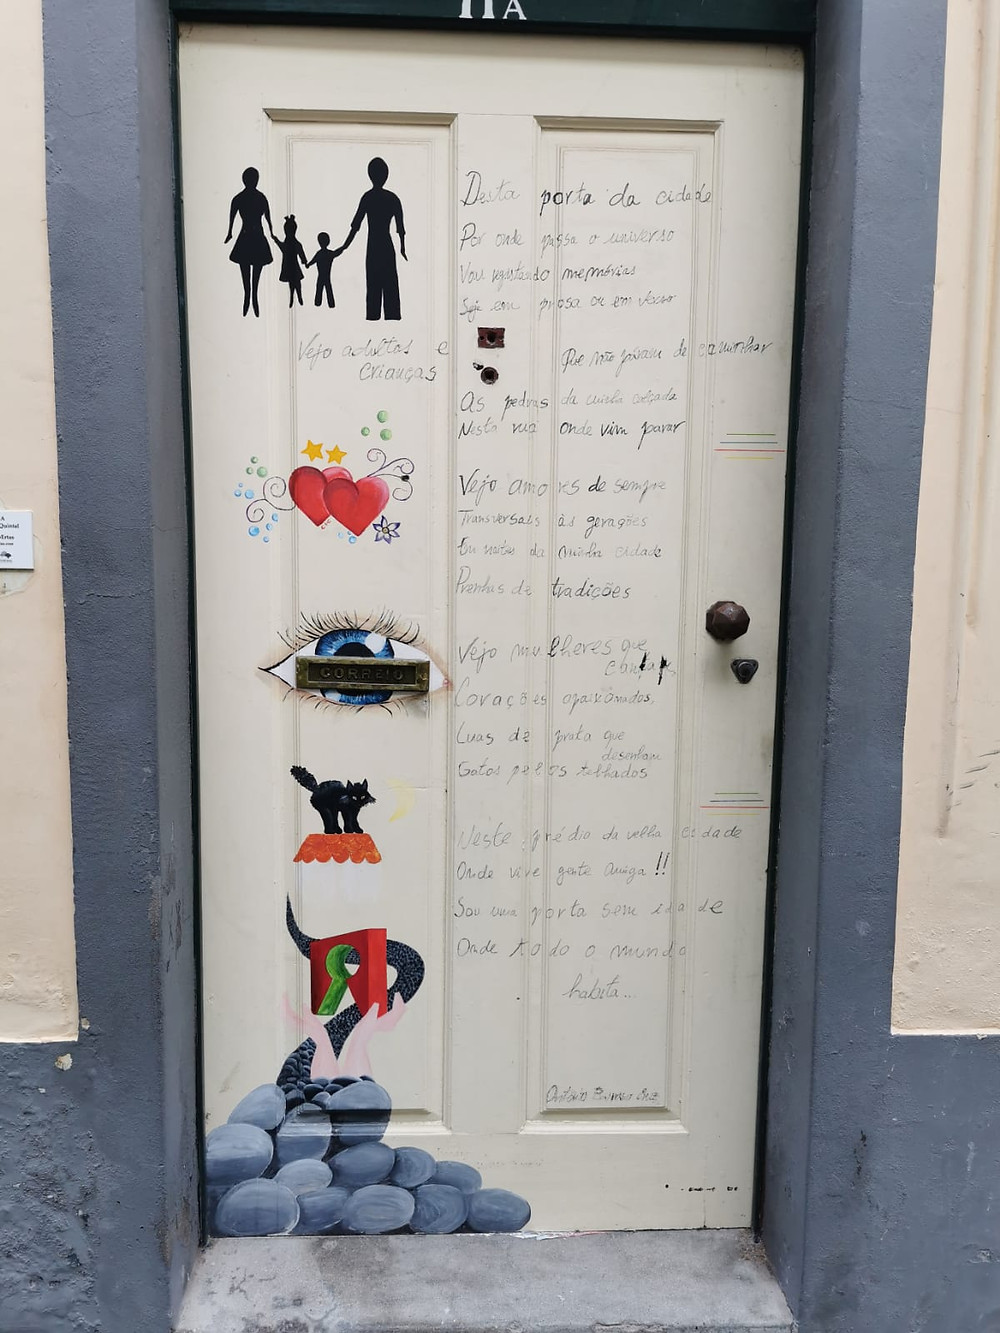 11A
Desta porta da cidade
Por onde passa o universo
Vou registando memórias
Seja em prosa ou em verso
Vejo adultos e
crianças
Que não páram de caminhar
As pedras da minha calçada
Nesta rua onde vim parar
Vejo amores de sempre
Transversais às gerações
Em noites da minha cidade
Prenhas de tradições
Vejo mulheres que
Corações apaixonados,
Luas de prata que
desenham
Gatos pelos telhados
Neste prédio da velha cidade
Onde vive gente amiga!!
Sou uma porta sem idade
Onde todo o mundo
habita...
António
CORREIO
A
Quintal